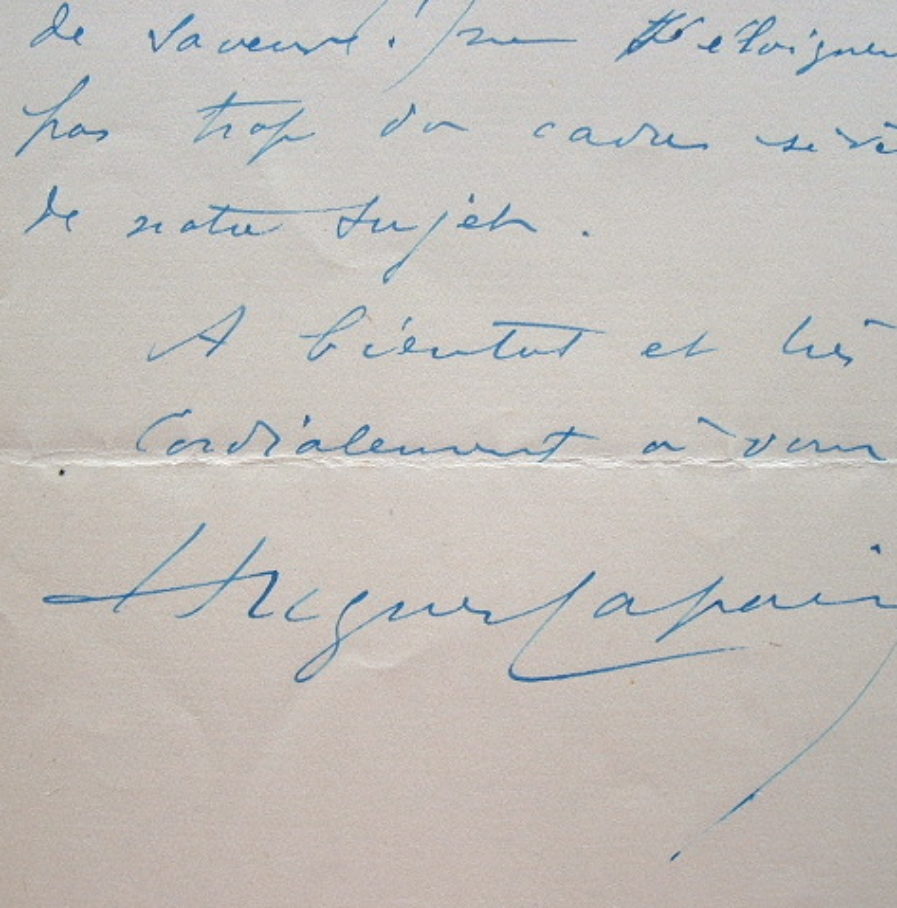 de saveur. ne s'éloigner
pas trop du cadre sévè
de notre sujet.
A bientôt et très
Cordialement à vous
Hugues Lapair